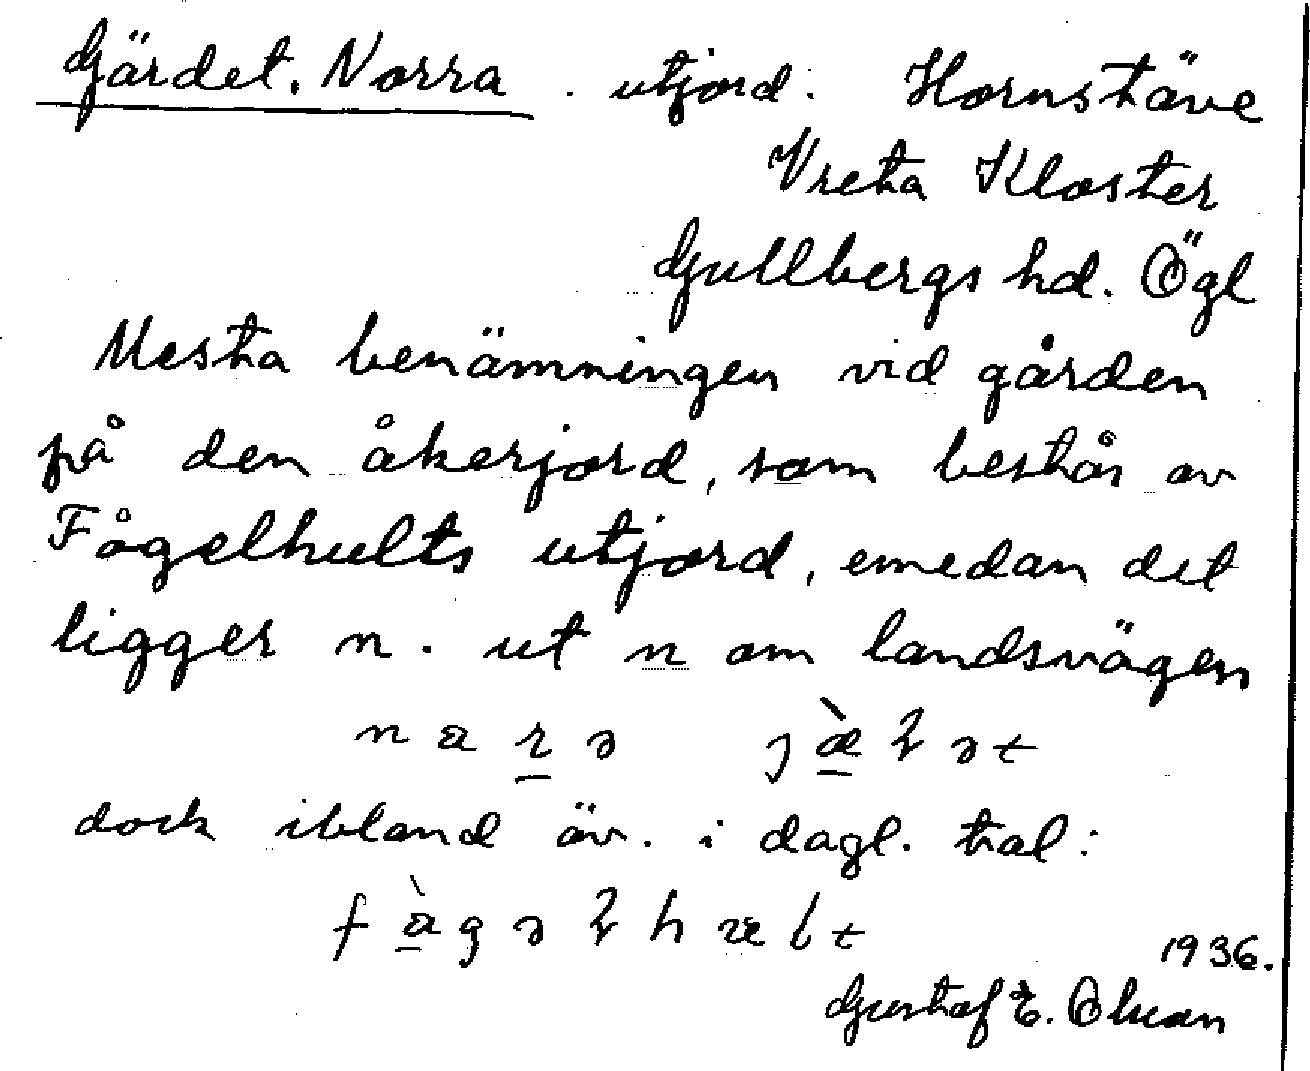 Gärdet, Norra . utjord: Hornstäve
Vreta Kloster
Gullbergs hd. Ögl
Mesta benämningen vid gården
på den åkerjord, som består av
Fågelhults utjord, emedan det
ligger n. ut n om landsvägen
dock ibland äv. i dagl. tal:
1936.
Gustaf E. Olsson